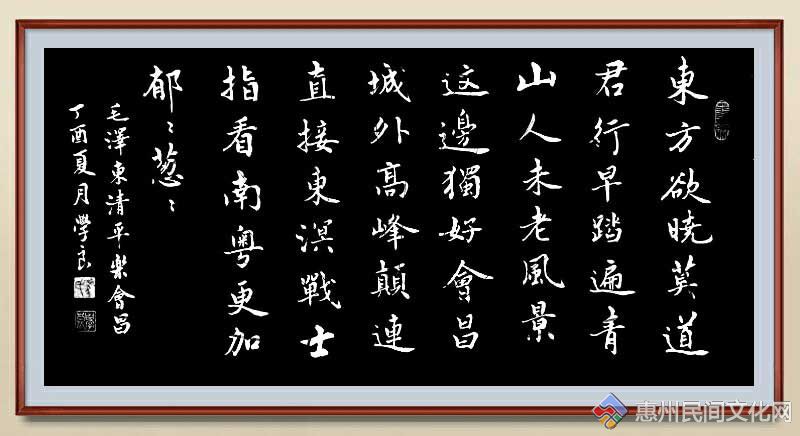 東方欲曉莫道
君行早踏遍青
山人未老風景
这邊獨好會昌
城外高峰顛連
直接東溟戰士
指看南粵更加
郁〻葱〻
毛澤東清平樂會昌
丁酉夏月學良
惠州民间文化网